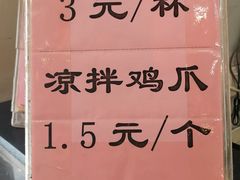 3元/杯
凉拌鸡爪
1.5元/个